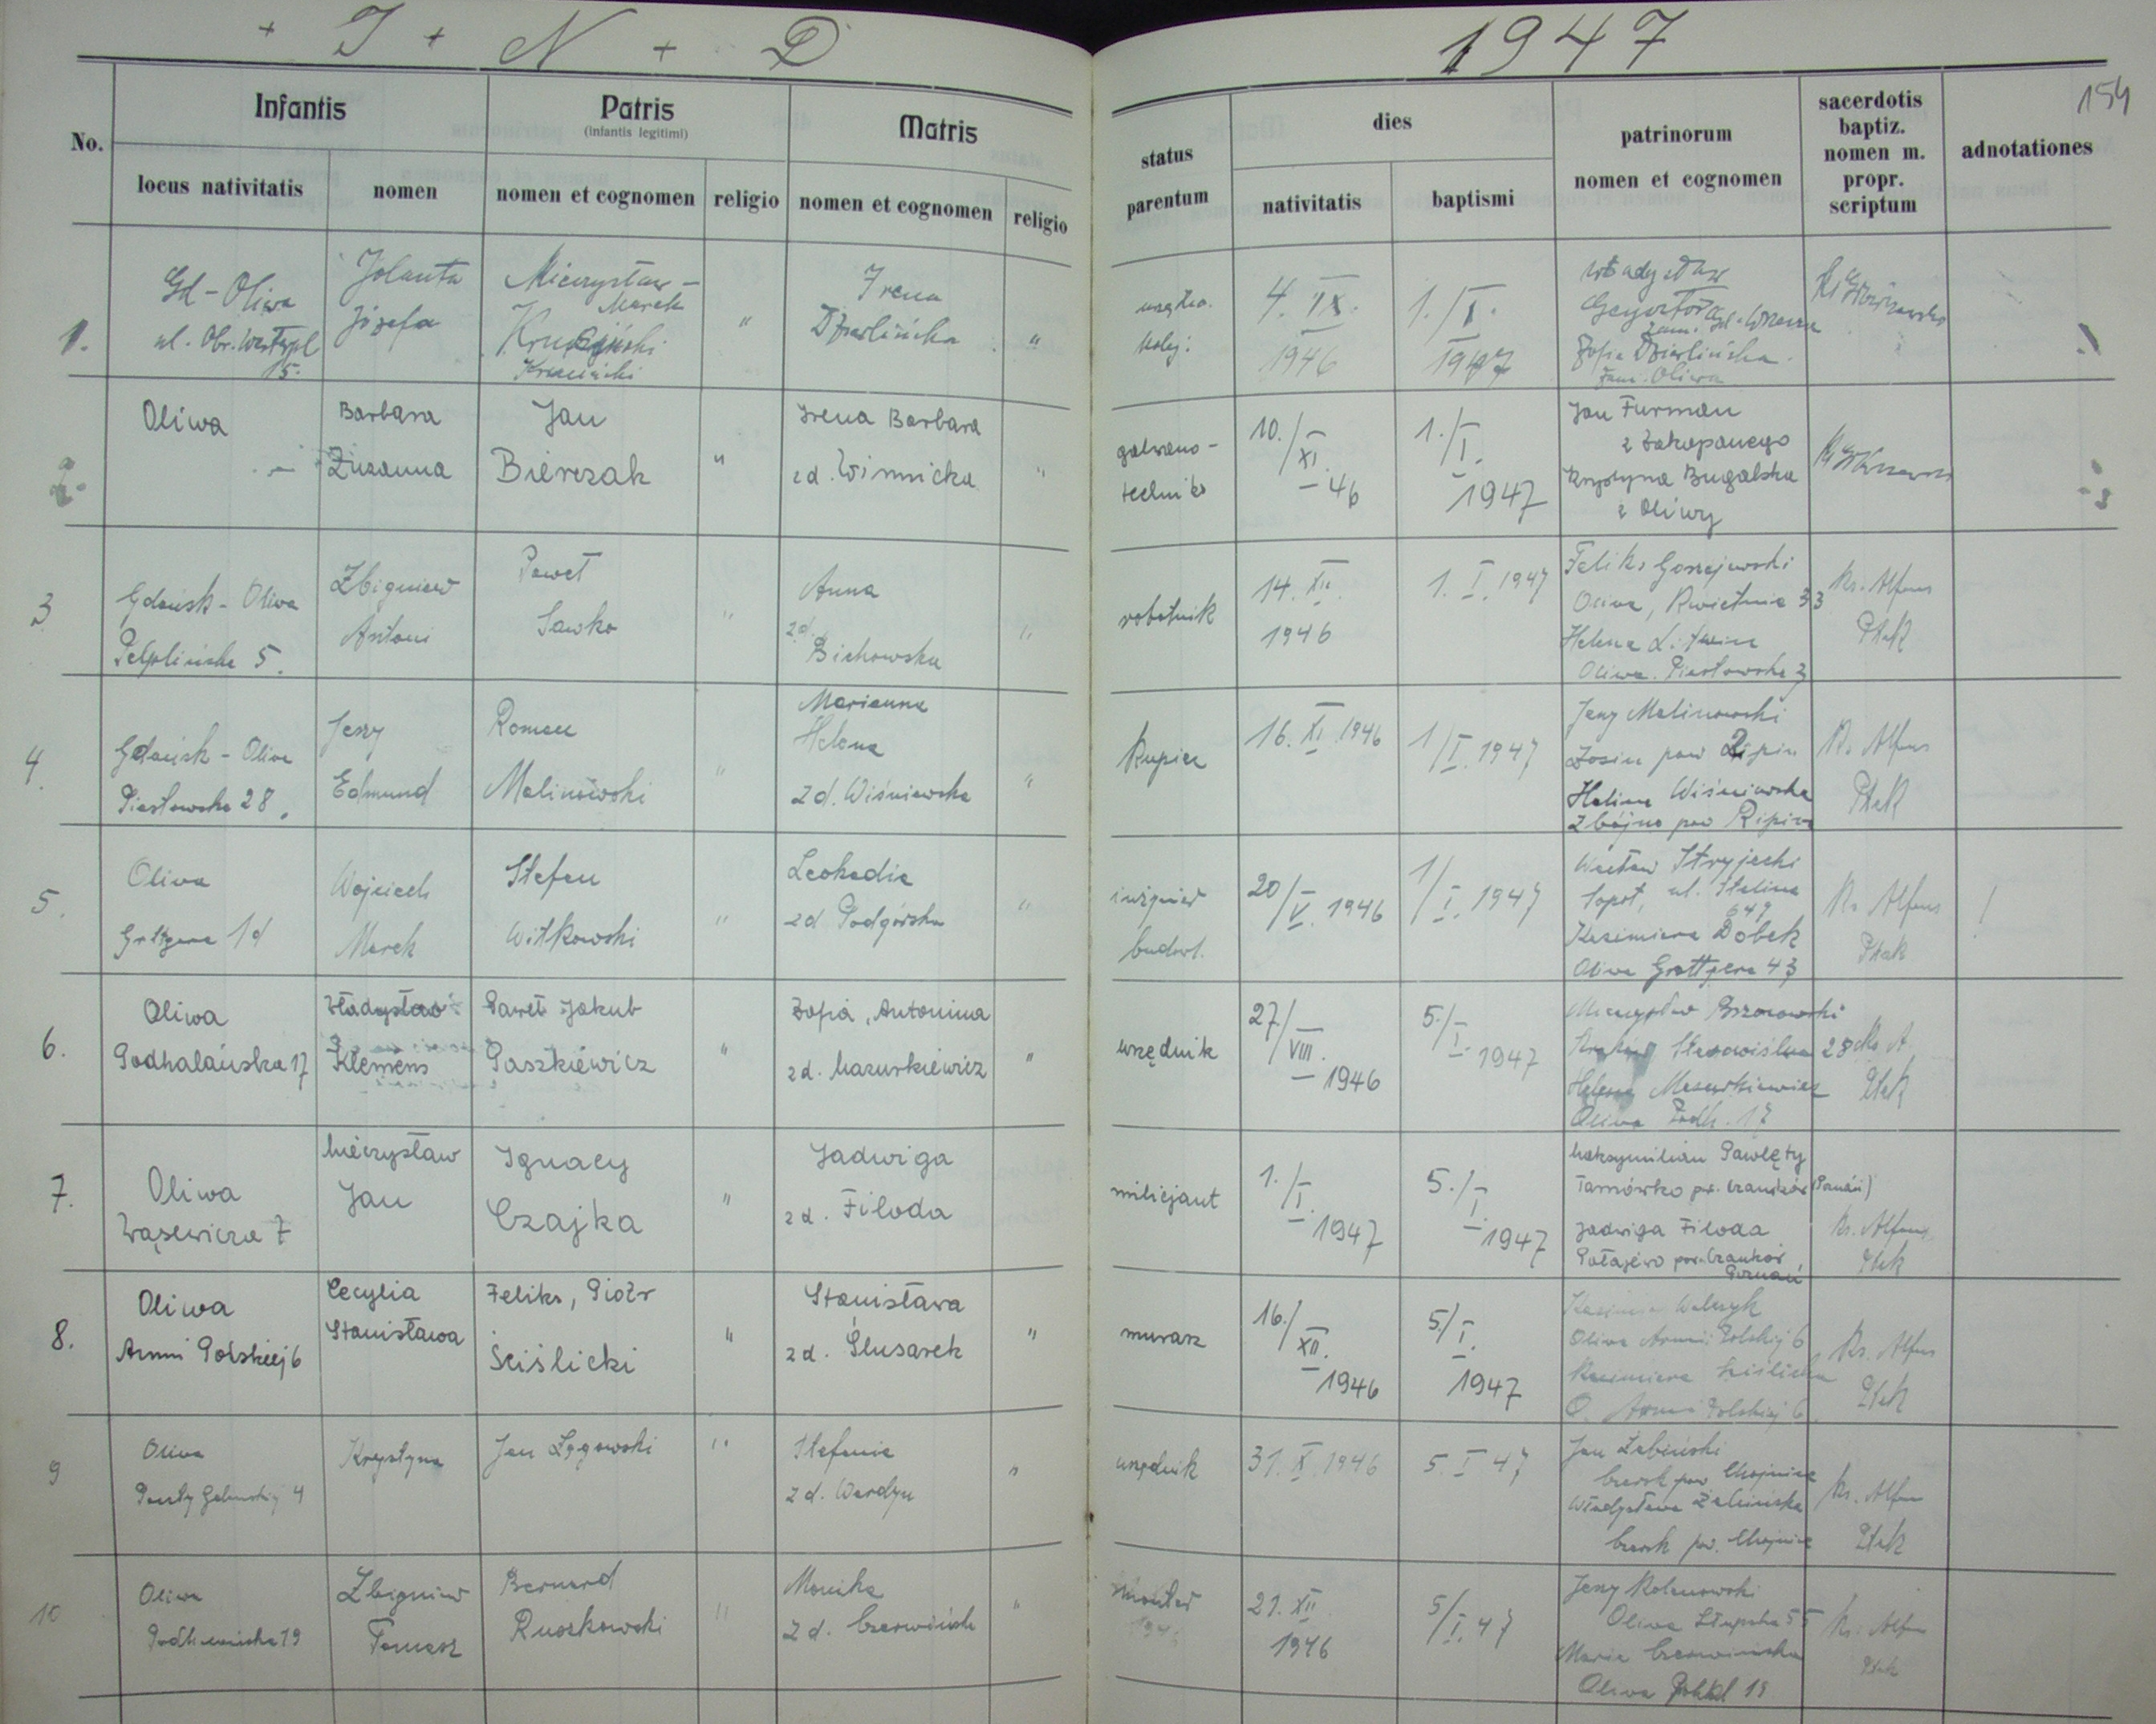 + I + N + D
1947
154
No.
Infantis
Patris
(infantis legitimi)
Matris
locus nativitatis
nomen
nomen et cognomen
religio
nomen et cognomen
religio
status
parentum
dies
nativitatis
baptismi
patrinorum
nomen et cognomen
sacerdotis
baptiz.
nomen m.
propr.
scriptum
adnotationes
1.
Gd - Oliwa
ul. Obr. Westrpl
5.
Jolanta
Józefa
Mieczysław -
Marek
"
Irena
"
4. IX.
1946
1. / I.
1947
Władysław
Zofia
zam. Oliwa
2.
Oliwa
Barbara
Zuzanna
Jan
Bierczak
"
Irena Barbara
zd. Winnicka
"
galwano-
technik
10. / XI.
- 46
1. / I.
1947
Jan Furman
z Zakopanego
Krystyna Bugalska
z Oliwy
3
Gdańsk - Oliwa
Pelplińska 5.
Zbigniew
Antoni
Paweł
Sawko
"
Anna
zd.
Bichowska
"
robotnik
14. XII.
1946
1. I. 1947
Feliks Goszejewski
Oliwa, Kwietna 33
Helena
Oliwa. Piastowska 3
Ks. Alfons
Ptak
4.
Gdańsk - Oliwa
Piastowska 28.
Jerzy
Edmund
Roman
Malinowski
"
Marianna
Helena
zd. Wiśniewska
"
Kupiec
16. XI. 1946
1 / I. 1947
Jerzy Malinowski
Zosin pow Lipin
Halina Wiśniewska
Zbójno pow Ripin
Ks Alfons
Ptak
5.
Oliwa
Grttgera 1d
Wojciech
Marek
Stefan
Witkowski
"
Leokadia
zd Podgórska
"
inżynier
budowl.
20 / V. 1946
1 / I. 1947
Wacław Stryjecki
Sopot, ul. Stalina
649
Kazimiera Dobek
Oliwa Grottgera 43
Ks Alfons
Ptak
!
6.
Oliwa
Podhalańska 17
Władysław
Klemens
Paweł Jakub
Paszkiewicz
"
Zofia, Antonina
zd. Mazurkiewicz
"
urzędnik
27 / VIII.
- 1946
5. / I.
1947
Mieczysław Brzozowski
Kraków Starowiślna 28
Helena Mazurkiewicz
Oliwa Podh. 17
Ks A.
Ptak
7.
Oliwa
Wąsewicza 7
Mieczysław
Jan
Ignacy
Czajka
"
Jadwiga
zd. Filoda
milicjant
1. / I.
1947
5. / I.
1947
Maksymilian Pawlęty
Tarnówko pow. Czarnków (Poznań)
Jadwiga Filoda
Połajewo pow. Czarnków
Poznań
Ks. Alfons
Ptak
8.
Oliwa
Armii Polskiej 6
Cecylia
Stanisława
Feliks, Piotr
Ściślicki
"
Stanisława
zd. Ślusarek
"
murarz
16. / XII.
1946
5. / I.
1947
Kazimierz Walczyk
Oliwa Armii Polskiej 6
Kazimiera Ściślicka
O. Armii Polskiej 6
Ks. Alfons
Ptak
9
Oliwa
4
Krystyna
Jan Łęgowski
"
Stefania
zd. Wardyn
"
urzędnik
31. X. 1946
5. I 47
Jan Żabiński
Czersk pow Chojnice
Władysława Żabińska
Czersk pow. Chojnice
Ks. Alfons
Ptak
10
Oliwa
19
Zbigniew
Tomasz
Bernard
Ruszkowski
"
Monika
zd. Czerwińska
"
monter
21. XII
1946
5 / I. 47
Jerzy
Oliwa Słupska 55
Maria Czerwińska
Oliwa 19
Ks. Alfons
Ptak